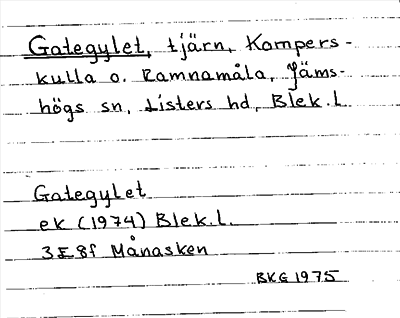 Gategylet, tjärn, Kompers-
kulla o. Ramnamåla, Jäms-
högs sn, Listers hd, Blek.l.
Gategylet
ek (1974) Blek.l.
3E 8f Månasken
BKG 1975